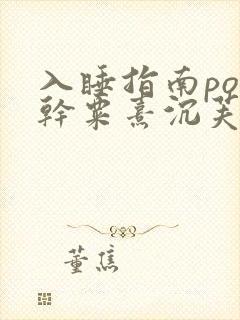 入睡指南po
幹粟熹沉芙
董焦